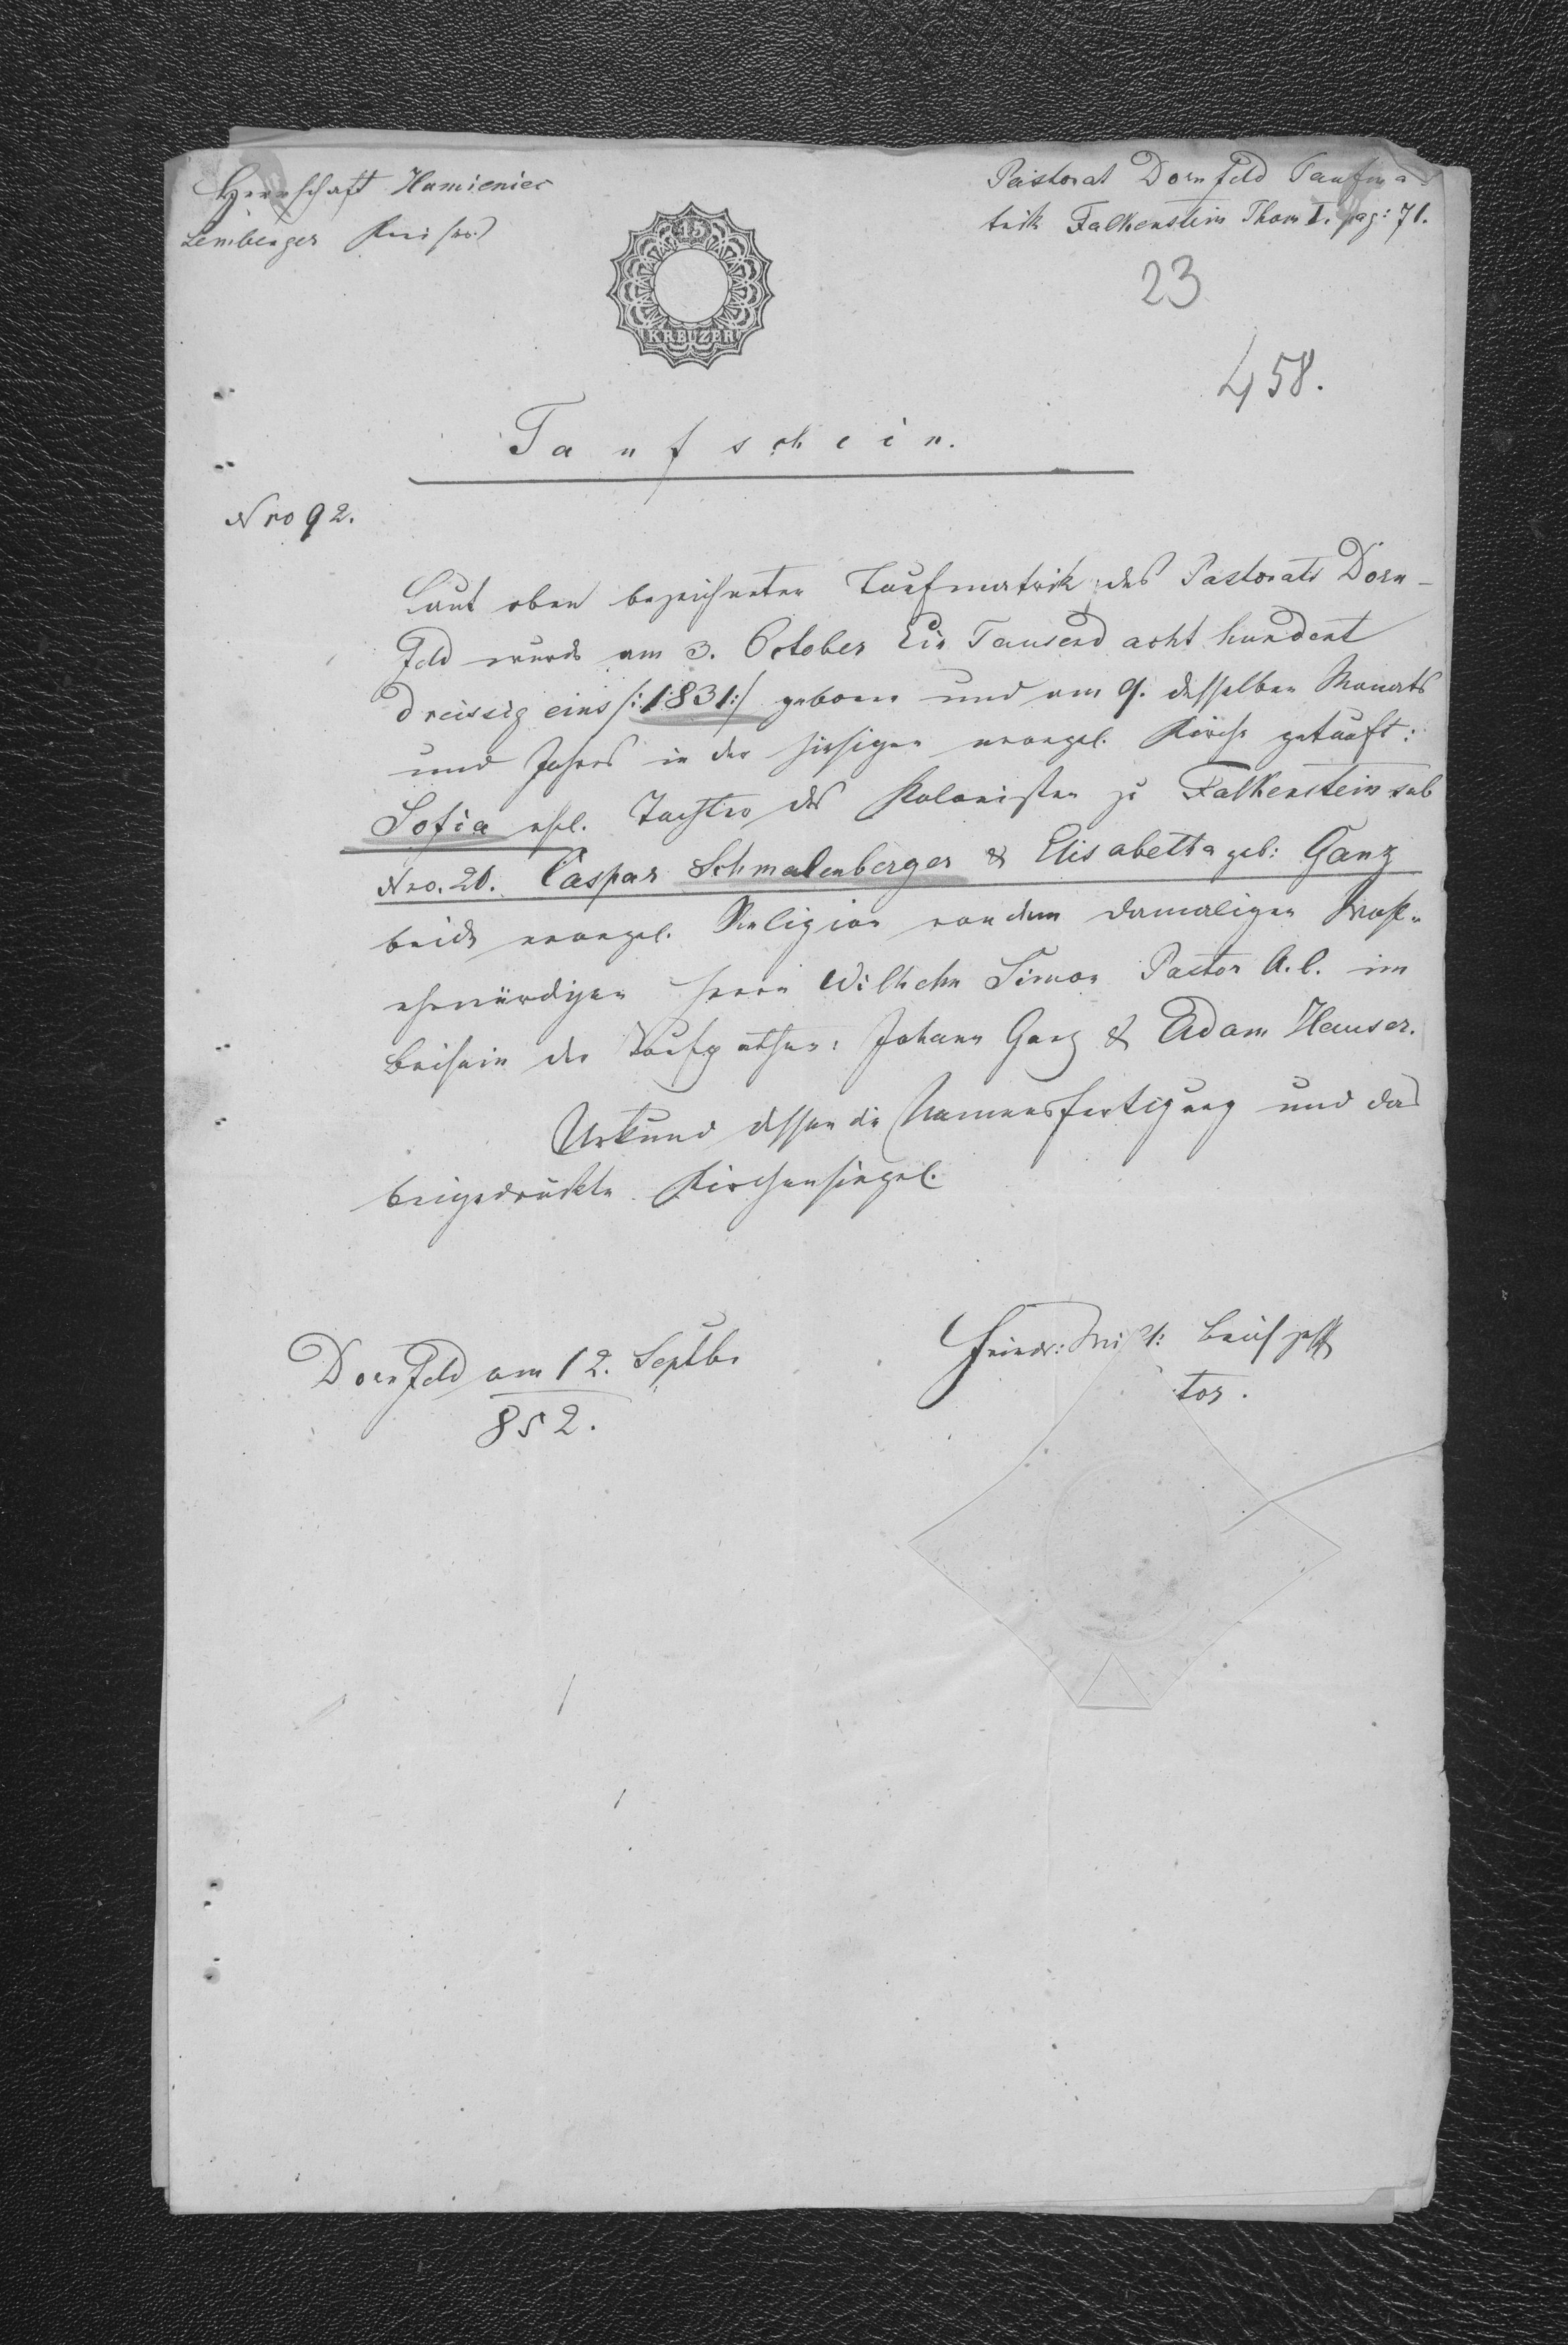 Herrschaft Humieniec
Lemberger Kreises
Pastorat Dornfeld Taufma-
trik Falkenstein Thom I. pag: 71.
15
KREUZER
23
458.
Taufschein.
Nro 92.
Laut oben bezeichneter Taufmatrik des Pastorats Dorn-
feld wurde am 3. October Ein Tausend acht hundert
dreissig eins /:1831:/ geboren und am 9. desselben Monats
und Jahres in der hiesigen evangel. Kirche getauft:
Sofia ehel. Tochter des Kolonisten zu Falkenstein sub
Nro. 20. Caspar Schmalenberger & Elisabetha geb: Ganz
beide evangel. Religion von dem damaligen Wohl-
ehrwürdigen Herrn Wilhelm Simon Pastor A.C. im
Beisein der Taufpathen: Johann Ganz & Adam Hauser.
Urkund dessen die Namensfertigung und das
beigedrückte Kirchensiegel.
Dornfeld am 12. Septbr
852.
Friedr: